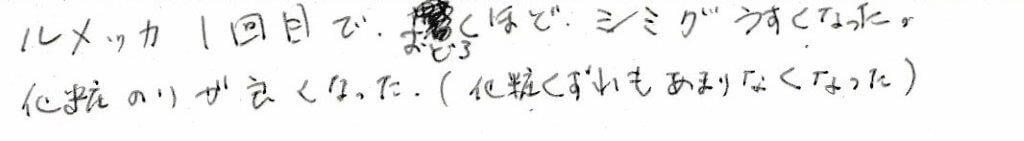 ルメッカ1回目で、おどろくほど、シミがうすくなった。
化粧のりが良くなった。(化粧くずれもあまりなくなった)